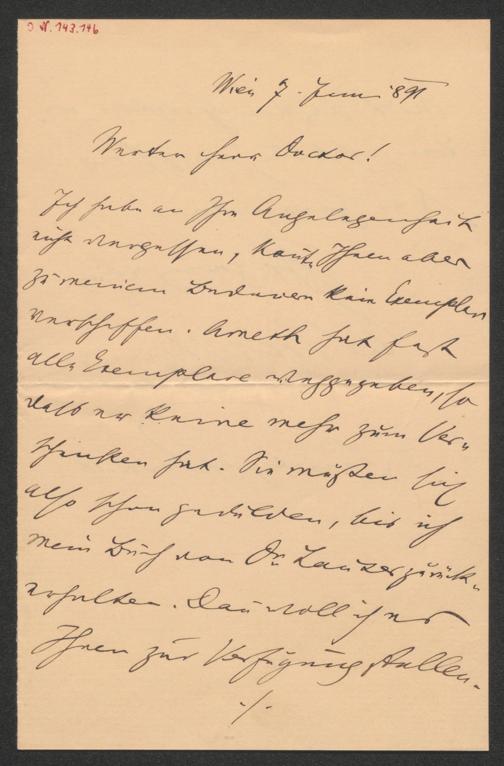 J.N. 143.146
Wien 7. Juni 891
Werter Herr Doctor!
Ich habe an Ihre Angelegenheit
nicht vergessen, konte Ihnen aber
zu meinem Bedauern kein Exemplar
verschaffen. Arneth hat fast
alle Exemplare weggegeben, so
daß er keine mehr zum Ver-
schicken hat. Sie müßten sich
also schon gedulden, bis ich
mein Buch von Dr. Lauser zurück-
erhalten. Dan will ich es
Ihnen zur Verfügung stellen.
./.